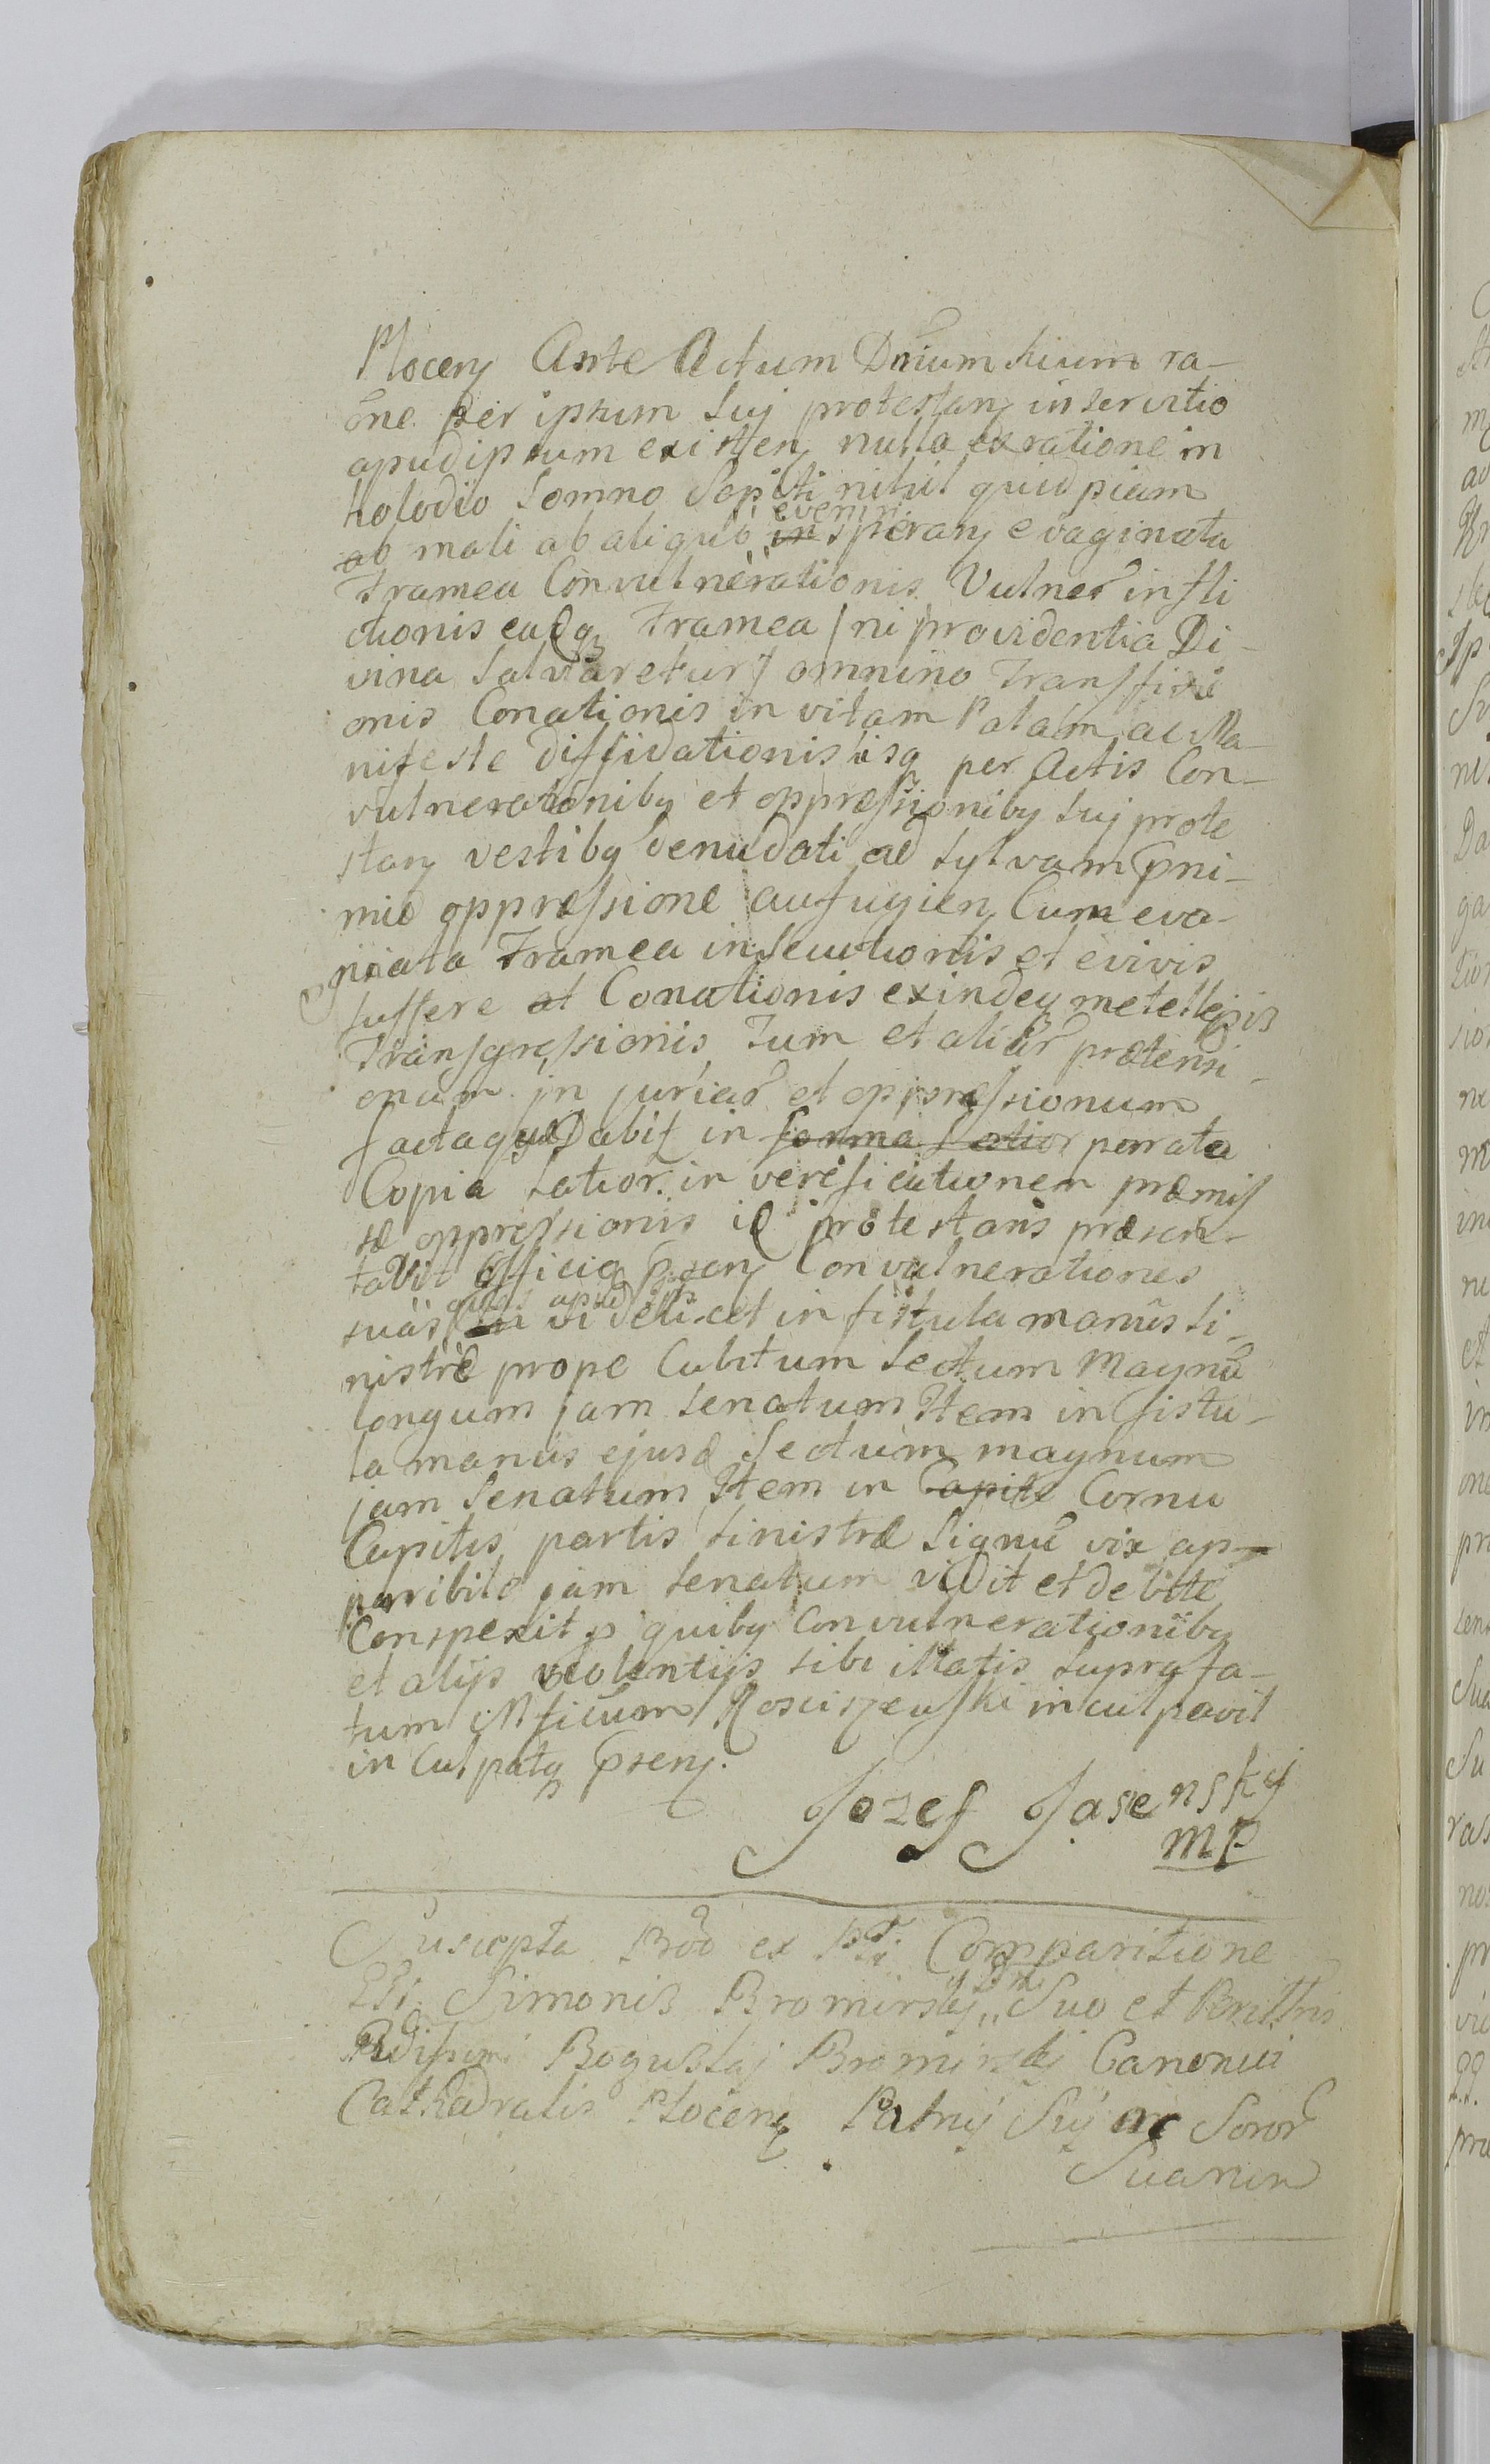 Plocen Ante Actum Dnium suum ra-
one per ipsum sui protestan in servitio
apud ipsum existen nulla ex ratione in
holodio somno sopiti nihil quidpiam
ab mali ab aliquo evenire speran evaginata
Framea Convulnerationis Vulner infli
ctionis eadq Framea / ni providentia Di-
vina Salvaretur / omnino Transfixi
onis Conationis in vitam Palam ac Ma-
nifeste diffidationis usq per Actis Con-
vulnerationiby et oppressioniby sui prote
stan vestiby denudati ad sylvam pni-
mia oppressione aufugien Cum eva-
ginata Framea insecutionis et e vivis
suffere at Conationis exindeq metell
Transgressionis Tum et aliar prætensi-
onum injuriar et oppressionum
factaq in forma latior parata
Copia latior. in verificationem præmis
sæ oppressionis id protestans præsen-
tavit Officio psen Convulnerationes
suas quas apud videlicet in fistula manus si-
nistræ prope Cubitum Sectum Magnu
longum jam senatum Item in fistu-
la manus ejusd Sectum magnum
jam Senatum Item in Capite Cornu
Capitis partis sinistræ Signu vix ap-
paribile jam senatum vidit et debite
Conspexit p quiby Convulnerationiby
et alijs violentijs sibi illatis supra fa-
tum Mficum Rosciszewski inculpavit
in Culpatq psen.
Jozef Jasenskÿ
mp
Suscepta Rõo ex Comparitione
Simonis Bromirskij Suo et
Boguslaj Bromirskij Canonici
Cathedralis Plocen Patrui Sui ac Soror
Suarum